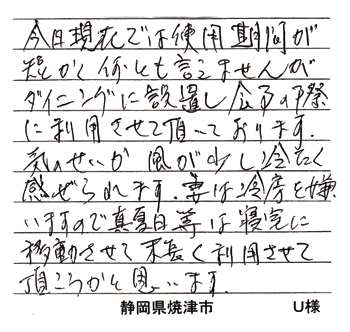 今日現在では使用期間が
短かく何とも言えませんが
ダイニングに設置し会了の際
に利用させて頂いております.
気のせいか風が少し冷たく
感ぜられます.妻は冷房を嫌
いますので真夏日等は寝室に
移動させて末長く利用させて
頂こうかと思います.
静岡県焼津市 U様